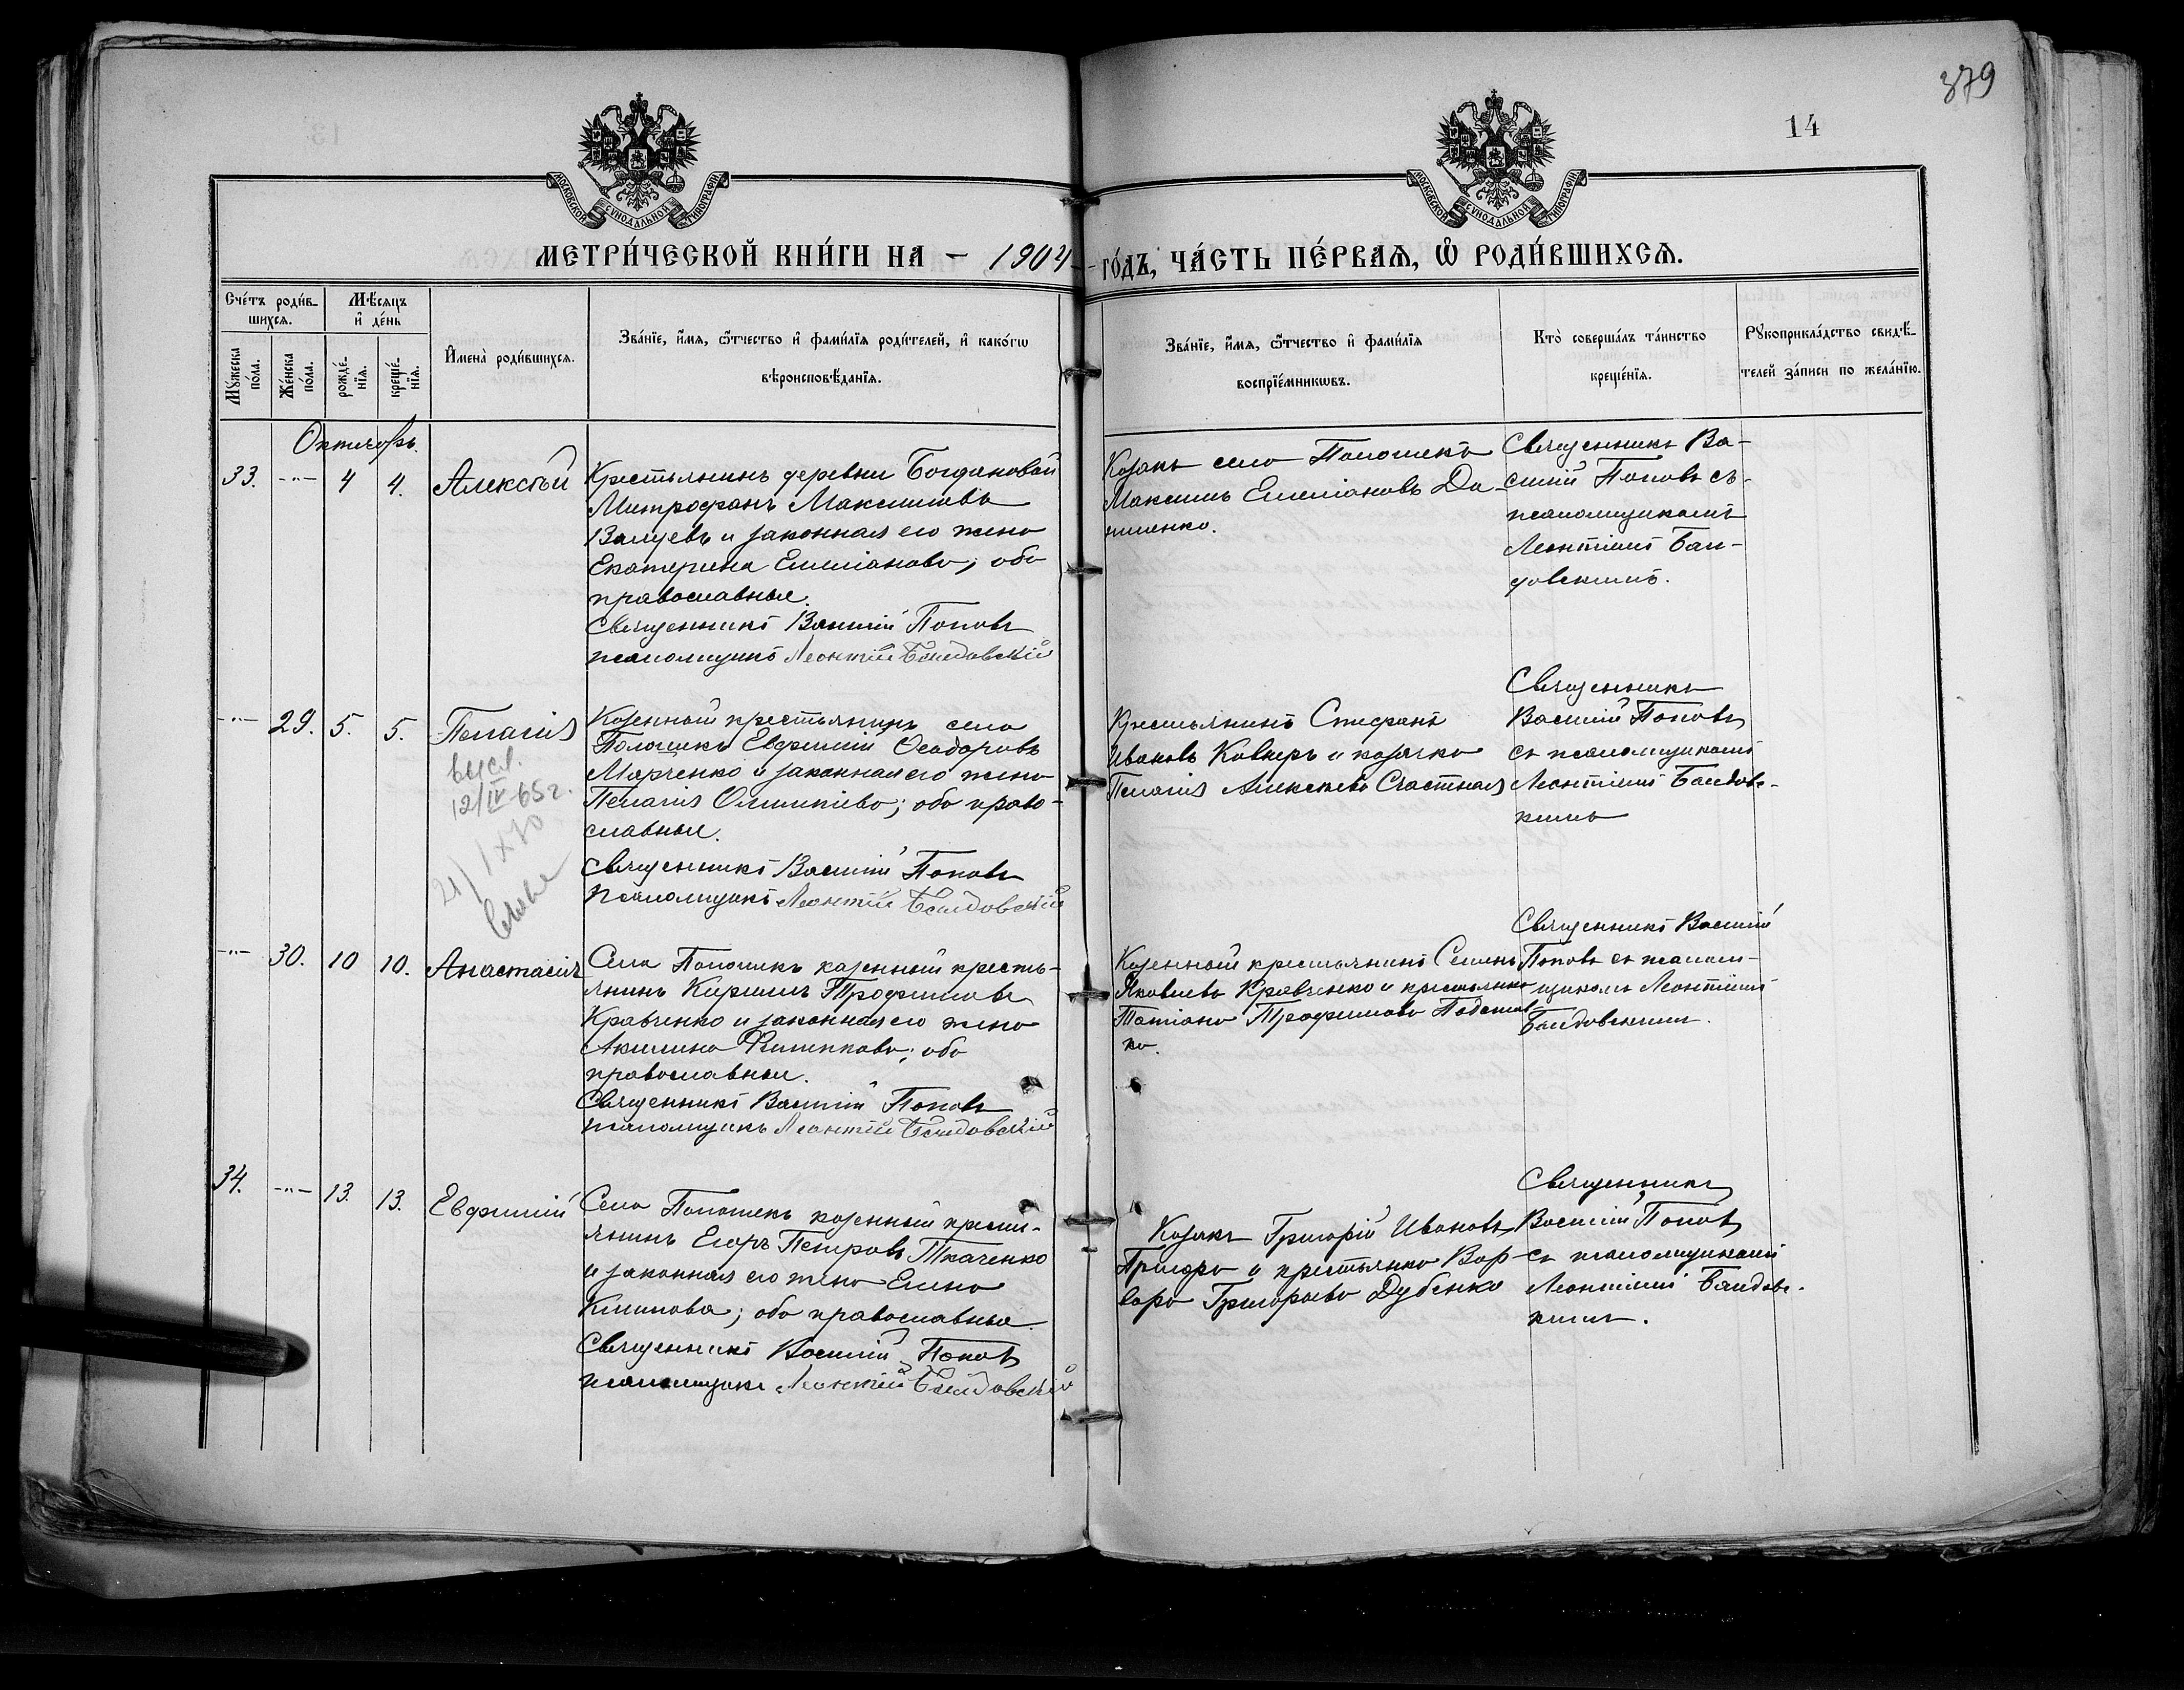 379
14
МОСКОВСКОЙ СѴНОДАЛЬНОЙ ТИПОГРАФІИ
МОСКОВСКОЙ СѴНОДАЛЬНОЙ ТИПОГРАФІИ
МЕТРИ́ЧЕСКОЙ КНИ́ГИ НА - 1904 - ГО́ДЪ, ЧА́СТЬ ПЕ́РВАѦ, Ѡ҆ РОДИ́ВШИХСѦ.
Сче́тъ роди́в-
шихсѧ.
Мѣ́сѧцъ
и҆ де́нь
Мꙋ́жеска
по́ла.
Же́нска
по́ла.
рожде́-
нїѧ.
креще́-
нїѧ.
И҆мена̀ роди́вшихсѧ.
Зва́нїе, и҆́мѧ, ѻ҆́тчество и҆ фами́лїѧ роди́телей, и҆ како́гѡ
вѣроисповѣ́данїѧ.
Зва́нїе, и҆́мѧ, ѻ҆́тчество и҆ фами́лїѧ
воспрїе́мникѡвъ.
Кто̀ соверша́лъ та́инство
креще́нїѧ.
Рꙋкоприкла́дство свидѣ́-
телей за́писи по жела́нїю.
Октябрь.
33. -"- 4 4. Алексѣй
Крестьянинъ деревни Богдановой
Митрофанъ Максимовъ
Валуевъ и законная его жена
Екатерина Емиліанова; оба
православные.
Священникъ Василій Поповъ
псаломщикъ Леонтій Баидовскій
Козакъ села Пологокъ
Максимъ Емиліановъ Да-
ниленко.
Священникъ Ва-
силій Поповъ съ
псаломщикомъ
Леонтіемъ Баи-
довскимъ.
-"- 29. 5. 5. Пелагія
12/IV-65г.
Казенный крестьянинъ села
Пологокъ Евфимій Ѳеодоровъ
Марченко и законная его жена
Пелагія Олимпіева; оба право-
славные.
Священникъ Василій Поповъ
Псаломщикъ Леонтій Баидовскій
Крестьянинъ Стефанъ
Ивановъ Ковнеръ и козачка
Пелагія Алексѣева Счастная
Священникъ
Василій Поповъ
съ псаломщикомъ
Леонтіемъ Баидовс-
кимъ
-"- 30. 10 10. Анастасія
Села Пологокъ казенный кресть-
янинъ Кириллъ Трофимовъ
Кравченко и законная его жена
Акилина Филиппова; оба
православные.
Священникъ Василій Поповъ
псаломщикъ Леонтій Баидовскій
Казенный крестьянинъ Семенъ
Яковлевъ Кравченко и крестьянка
Татіана Трофимова
ко.
Священникъ Василій
Поповъ съ псалом-
щикомъ Леонтіемъ
Баидовскимъ.
34. -"- 13. 13. Евфимій
Села Пологокъ казенный кресть-
янинъ Егоръ Петровъ Ткаченко
и законная его жена Елена
Климова; оба православные.
Священникъ Василій Поповъ
псаломщикъ Леонтій Баидовскій
Козакъ Григорій Ивановъ
и крестьянка Вар-
вара Григорьева Дубенко
Священникъ
Василій Поповъ
съ псаломщикомъ
Леонтіемъ Баидовс-
кимъ.